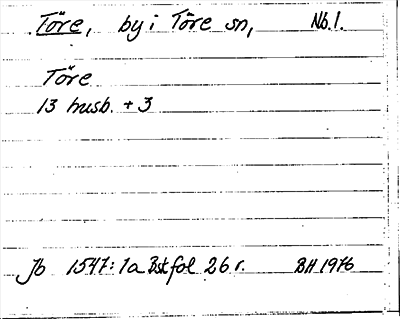 Töre, by i Töre sn, Nb.l.
Töre
13 husb. + 3
Jb 1547: 1a Bskfol 26 r. BH 1976